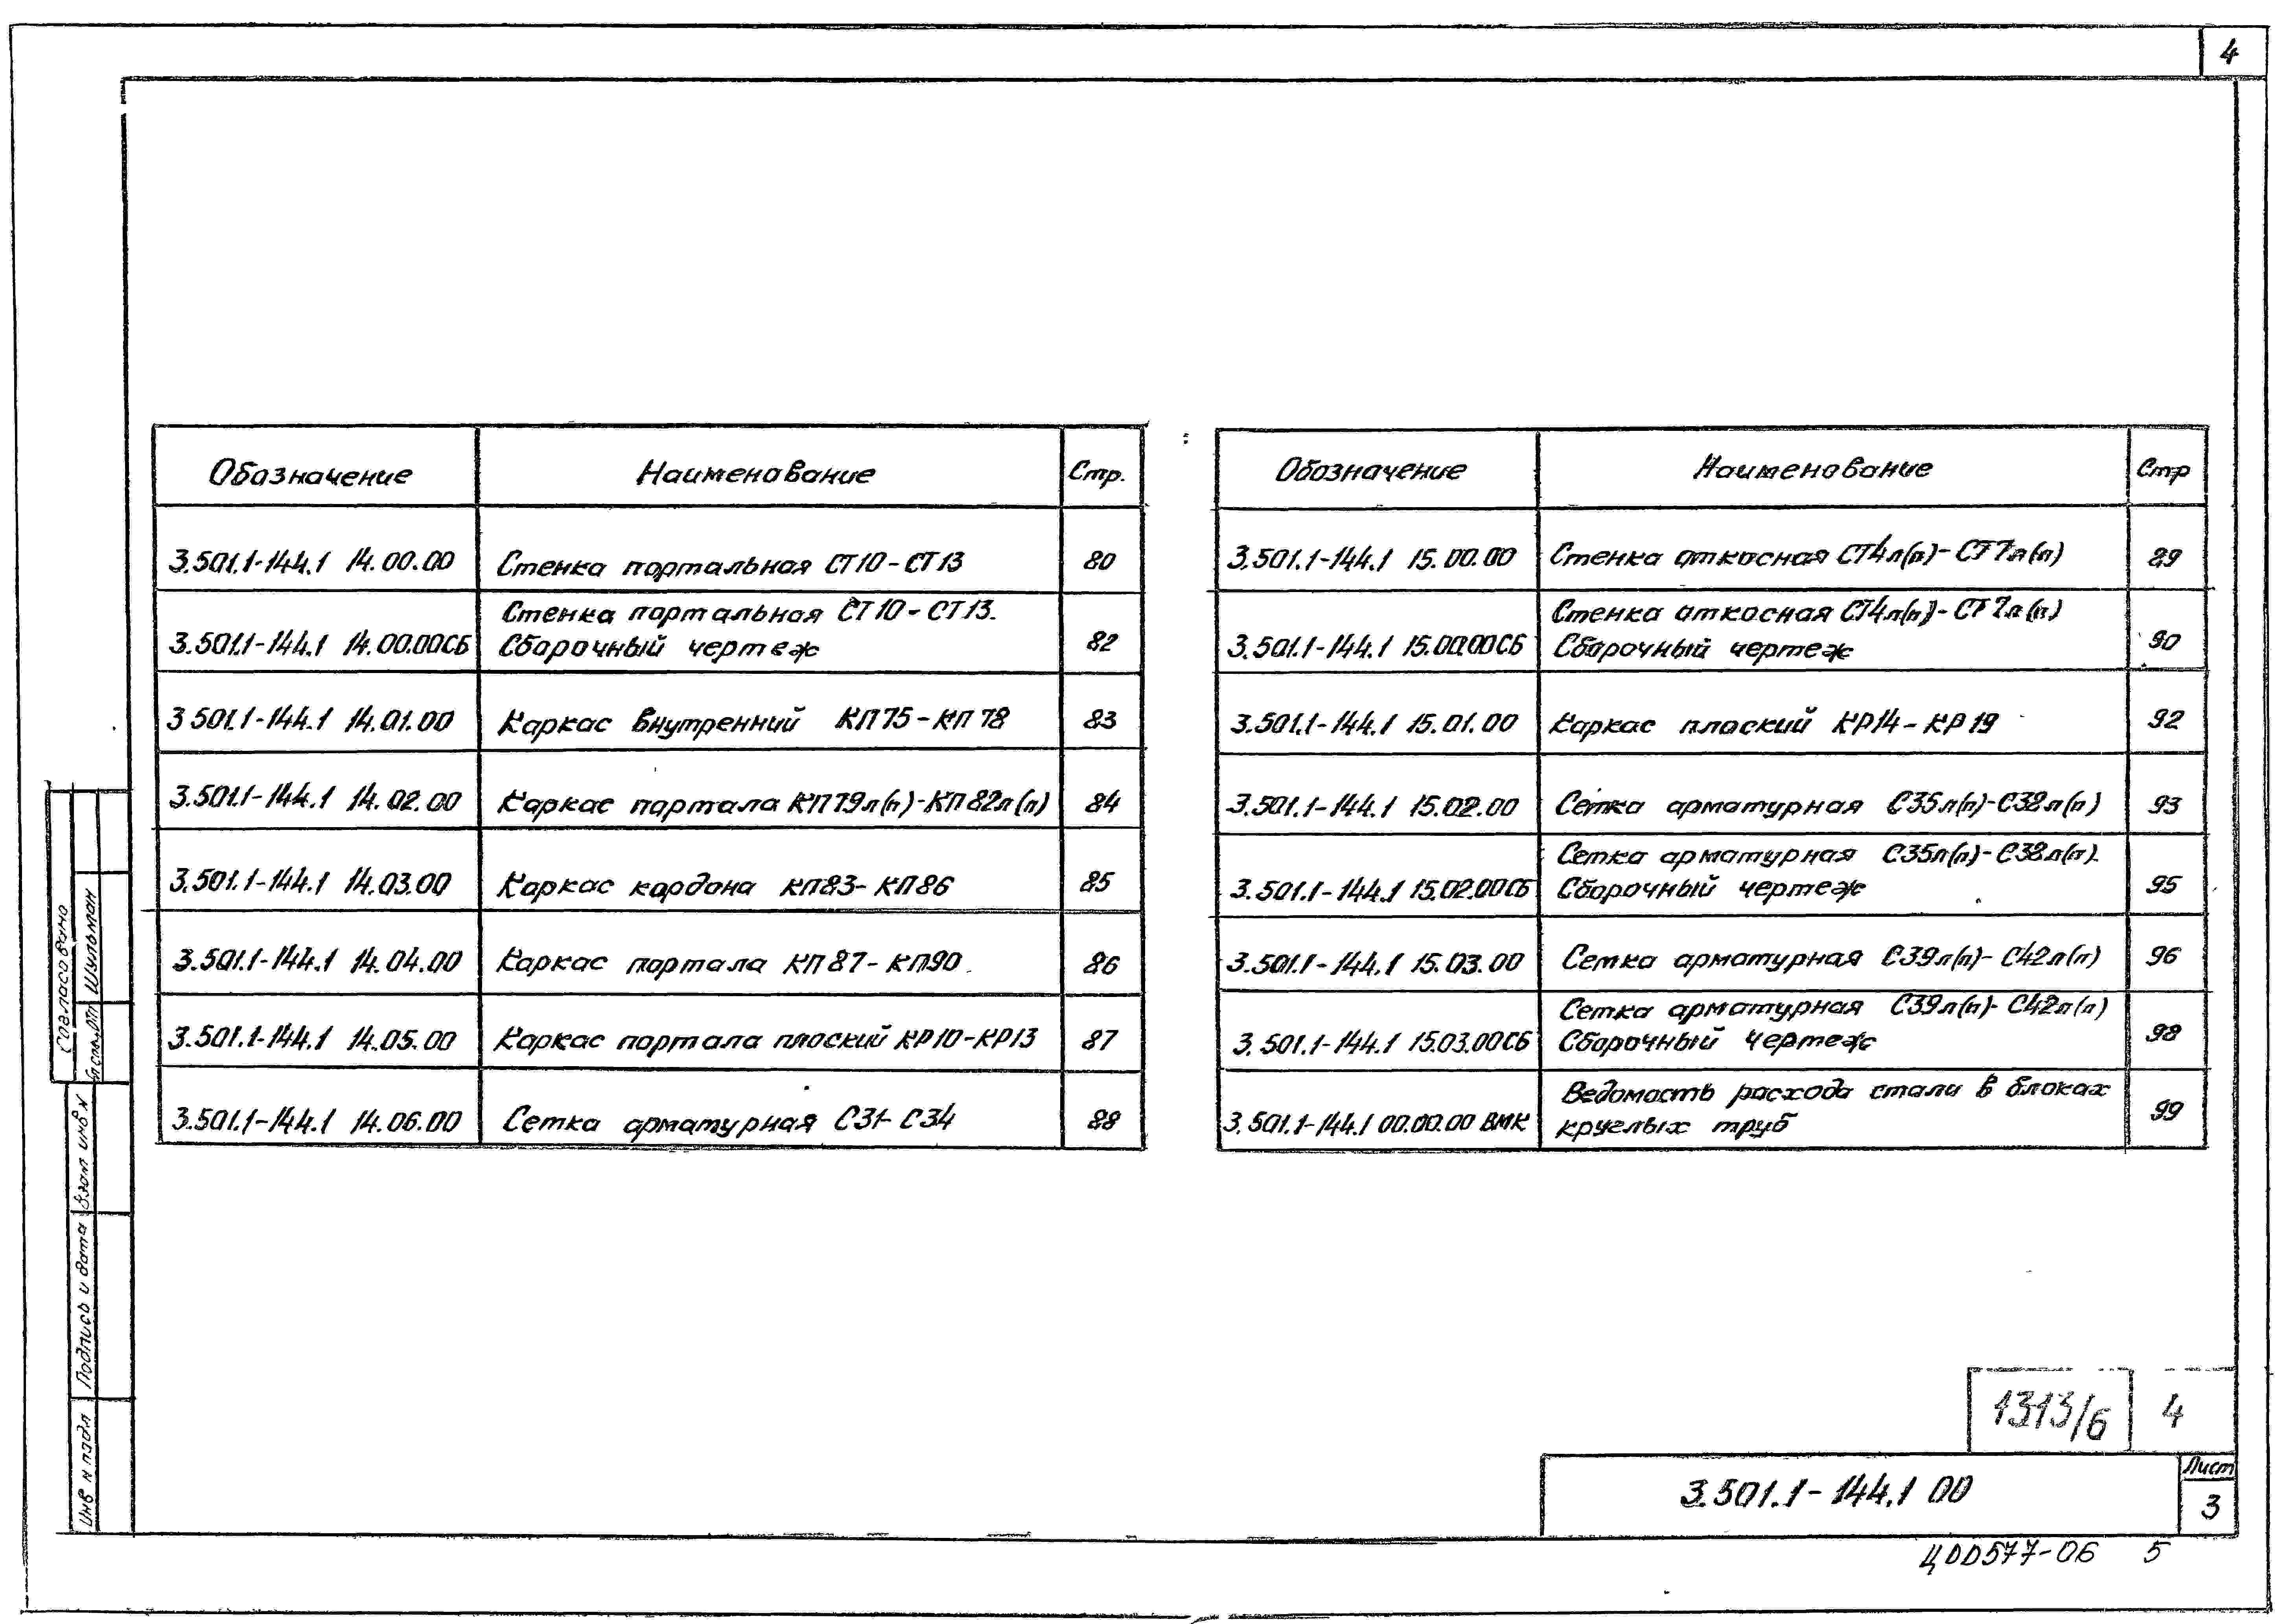 4
Обозначение Наименование Стр.
3.501.1-144.1 14.00.00 Стенка портальная СТ10-СТ13 80
Стенка портальная СТ10-СТ13.
3.501.1-144.1 14.00.00СБ Сборочный чертеж 82
3 501.1-144.1 14.01.00 Каркас внутренний КП75-КП78 83
3.501.1-144.1 14.02.00 Каркас портала КП79л(п)-КП82л(п) 84
3.501.1-144.1 14.03.00 Каркас кордона КП83-КП86 85
3.501.1-144.1 14.04.00 Каркас портала КП87-КП90 86
3.501.1-144.1 14.05.00 Каркас портала плоский КР10-КР13 87
3.501.1-144.1 14.06.00 Сетка арматурная С31-С34 88
Обозначение Наименование Стр
3.501.1-144.1 15.00.00 Стенка откосная СТ4л(п)-СТ7л(п) 89
Стенка откосная СТ4л(п)-СТ7л(п)
3.501.1-144.1 15.00.00СБ Сборочный чертеж 90
3.501.1-144.1 15.01.00 Каркас плоский КР14-КР19 92
3.501.1-144.1 15.02.00 Сетка арматурная С35л(п)-С38л(п) 93
Сетка арматурная С35л(п)-С38л(п).
3.501.1-144.1 15.02.00СБ Сборочный чертеж 95
3.501.1-144.1 15.03.00 Сетка арматурная С39л(п)-С42л(п) 96
Сетка арматурная С39л(п)-С42л(п)
3.501.1-144.1 15.03.00СБ Сборочный чертеж 98
Ведомость расхода стали в блоках
3.501.1-144.1 00.00.00 ВМК круглых труб 99
Согласовано
Шульман
Взам инв N
Подпись и дата
Инв N подл
1313/6 4
3.501.1-144.1 00
Лист
3
ЦОО577-06 5